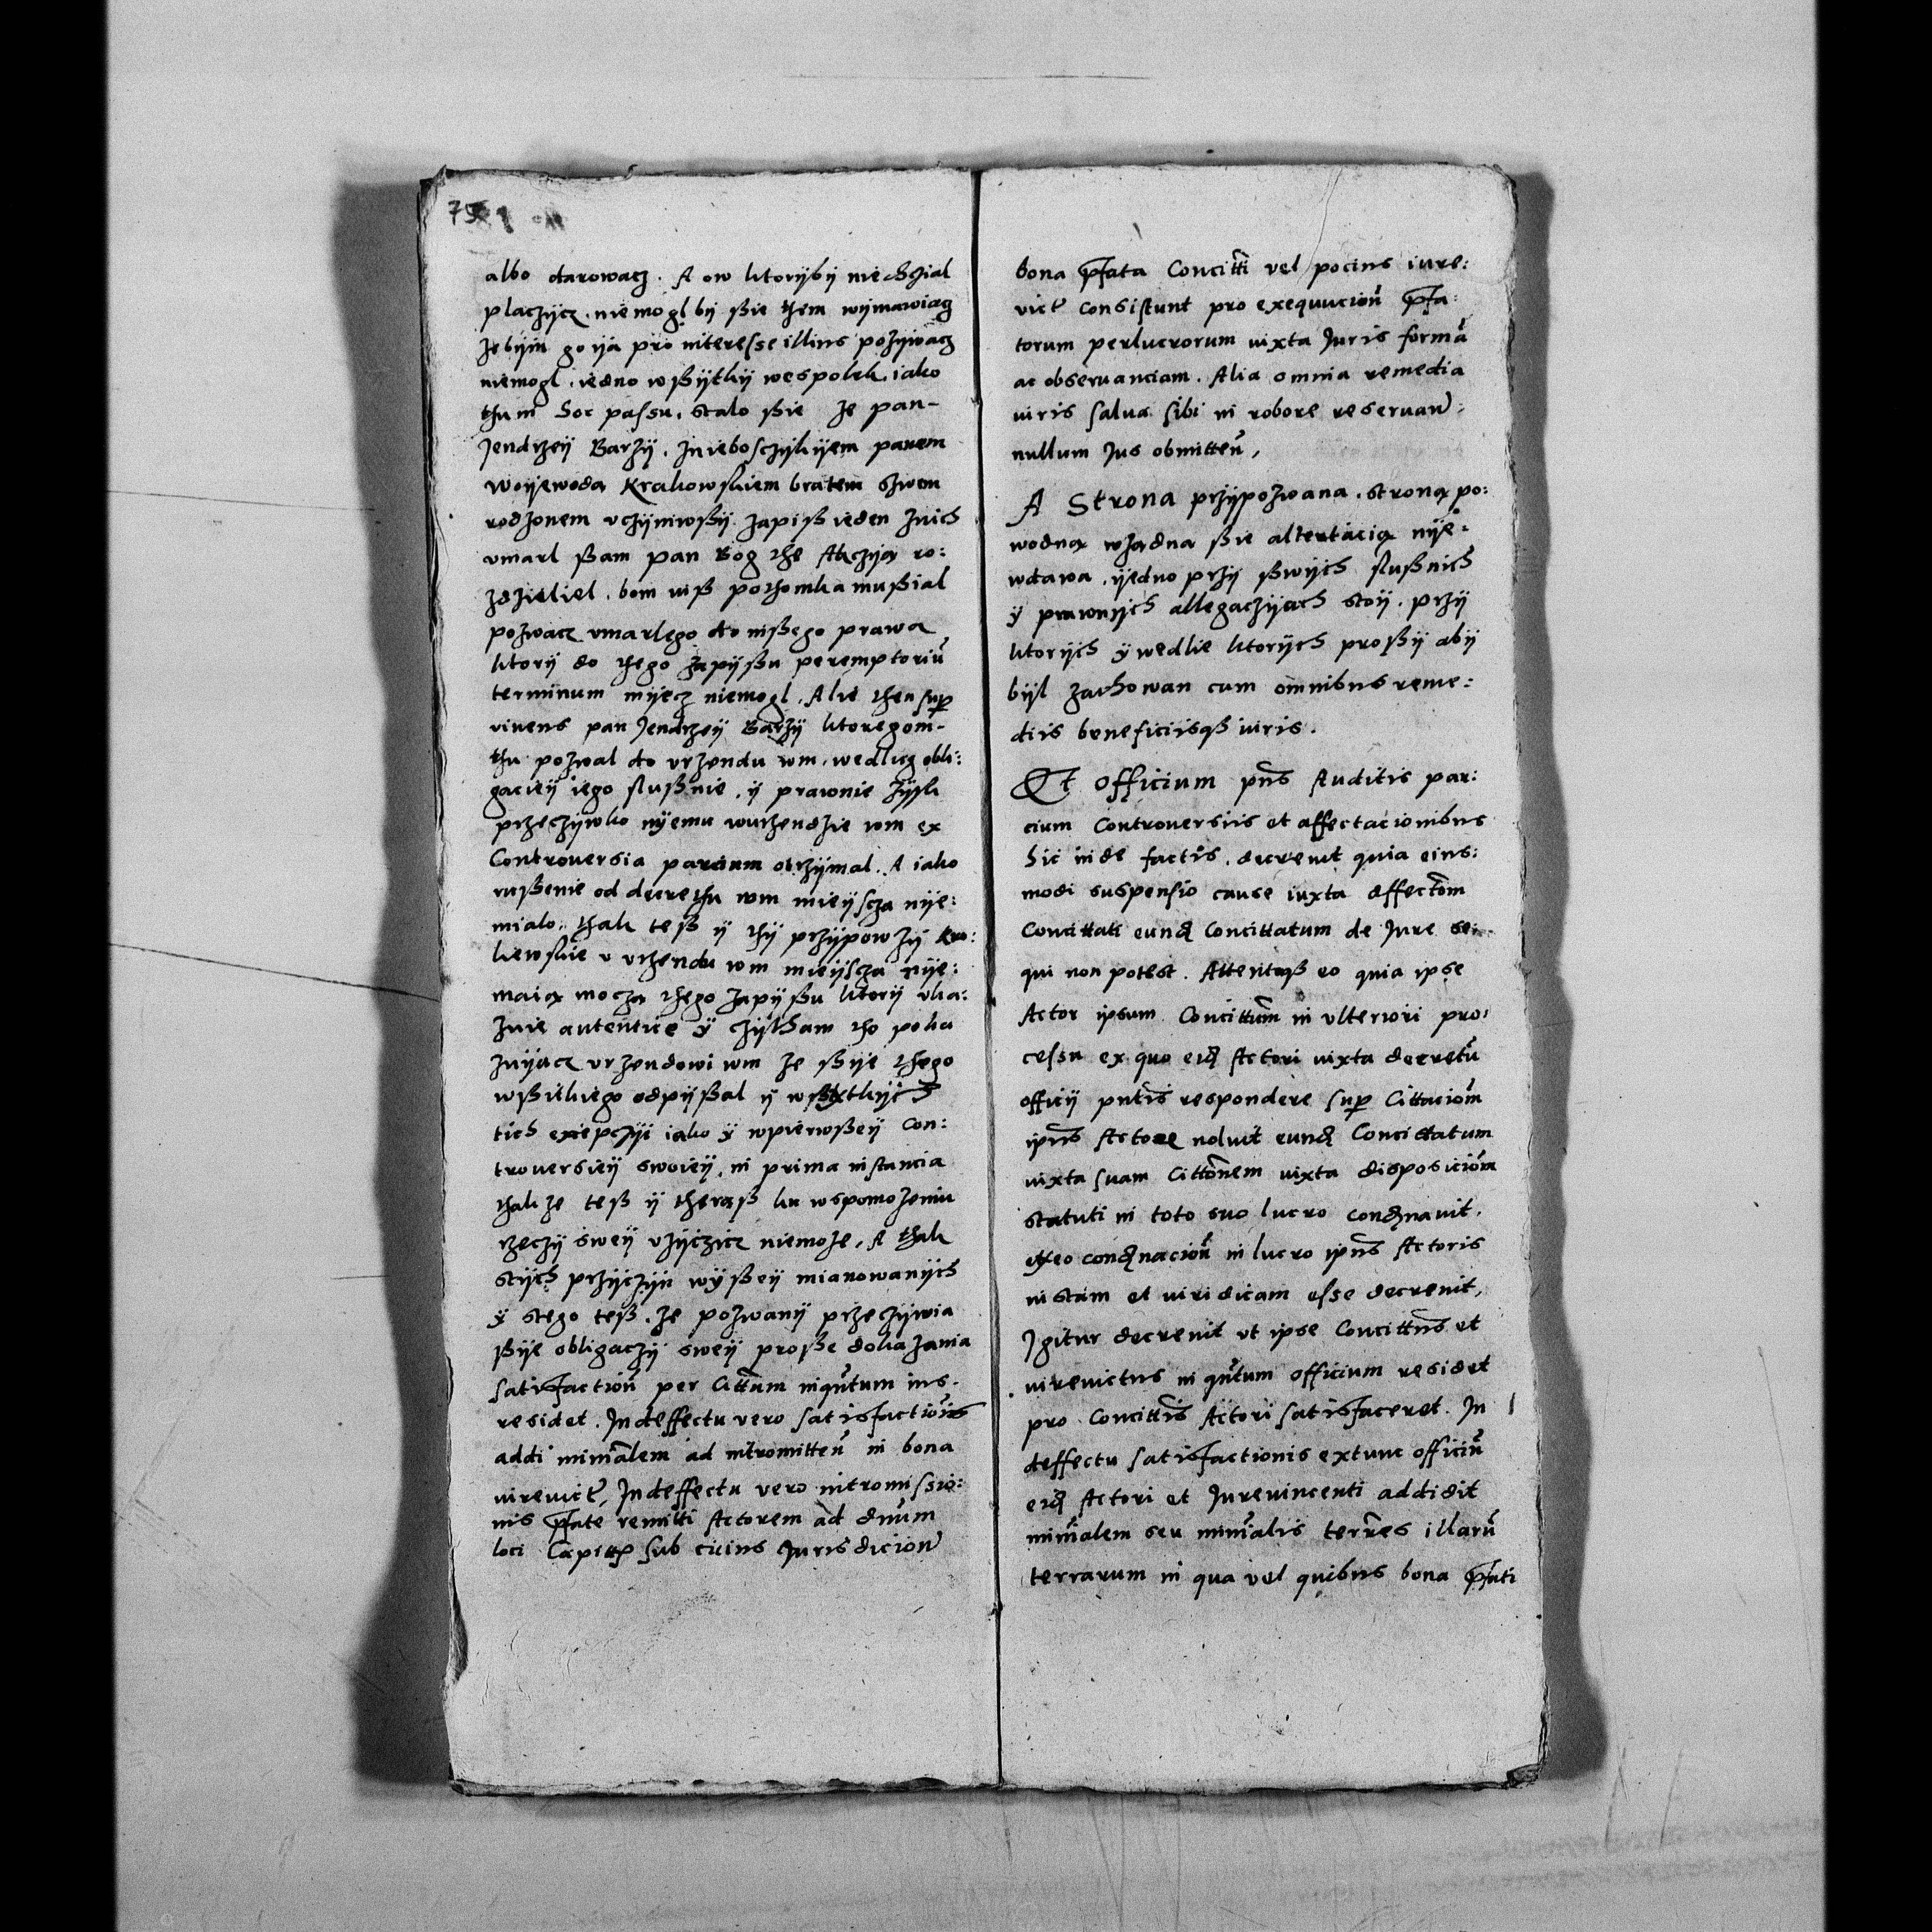 75
albo darowacz. A ow ktorijbij niechczial
placzijcz. niemogl bij ßie them wijmawiacz
zebijm go ija pro interesse illius pozijwacz
niemogl. iedno wßijtkij wespolek. iako
thu in hoc passu. stalo ßie ze pan-
Jendrzeij Barzij. znieboszczijkijem panem
Woijewoda Krakowskiem bratem szwem
rodzonem vczijniwßij zapiß ieden znich
vmarl ßam pan Bog the Akczija ro:
zdzieliel. bom iuß pothomka mußial
pozwacz vmarlego do inßego prawa
ktorij do thego zapijßu peremptoriũ
terminum mijecz niemogl. Alie then sup
viuens pan Jendrzeij Barzij ktoregom-
thu pozwal do vrzendu wm. wedlug obli:
gaciej iego slußnie. ij prawnie zijsk
przeczijwko nijemu wurzendzie wm ex
Controuersia parcium otrzijmal. A iako
rußenie od decrethu wm mieijscza nije:
mialo. thak teß ij thij przijpowzij Kro:
liewskie v vrzendu wm mieijscza nije:
maia mocza thego zapijßu ktorij vka:
zuie autentice ij czijtham tho poka
zuijacz vrzendowi wm ze ßije thego
wßitkiego odpijßal ij wßijtkijch
tich excepcziji iako ij wpierwßeij Con:
trouersieij swoieij. in prima instancia
thak ze teß ij theraß ku wspomozeniu
rzeczij sweij vzijczicz niemoze. A thak
stijch przijczijn wijßeij mianowanijch
ij stego teß. ze pozwanij przeczijwia
ßije obligaczij sweij proße dokazania
satisfactioñ per Cittatum inqũtum ius.
residet. In deffectu vero satisfactiõis
addi minrãlem ad intromitteñ in bona
iureuict. In deffectu vero intromissio:
nis pfate remitti Actorem ad dnũm
loci Capitt sub cuius Jurisdicion
bona pfata Concitti vel pocius iure:
vict consistunt pro exequucioñ pfa:
torum perlucrorum iuxta Juris formã
ac obseruanciam. Alia omnia remedia
iuris salua sibi in robore reseruan:
nullum Jus obmitteñ,
A Strona przijpozwana. strona po:
wodna wzadna ßie altertacia nije:
wdawa. ijedno przij ßwijch slußnich
ij prawnijch allegaczijach stoij. przij
ktorijch ij wedlie ktorijch proßij abij
bijl zachowan cum omnibus reme:
diis beneficiisqß iuris.
Et Officium pns Auditis par:
cium Controuersiis et affectacionibus
hic inde factis. decreuit quia eius:
modi suspensio cause iuxta affectom
Concittati eund Concittatum de Jure se:
qui non potest. Attentoqß eo quia ipse
Actor ipsum Concittum in vlteriori pro:
cessu ex quo eid Actori iuxta decretũ
officij pntis respondere sup Cittaciom
ipius Actore noluit eund Concittatum
iuxta suam Cittonem iuxta disposiciom
statuti in toto suo lucro condnauit.
etxeo condnacioñ in lucro ipius Actoris
iustam et iuridicam esse decreuit,
Igitur decreuit vt ipse Concittus et
iureuictus in qũtum officium residet
pro Concittis Actori satisfaceret. In
deffectu satisfactionis extunc officiũ
eid Actori et Jureuincenti addidit
minialem seu minialis terres illarũ
terrarum in qua vel quibus bona pfati